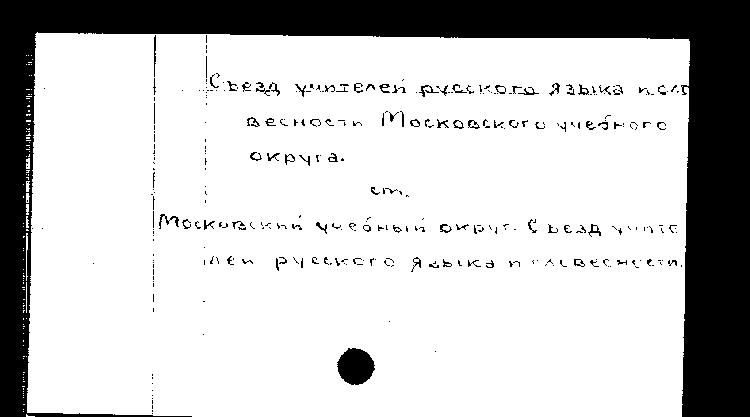 Съезд учителей русского языка и сло
весности Московского учебного
округа.
см.
Московский учебный округ. Съезд учите
лей русского языка и словесности.